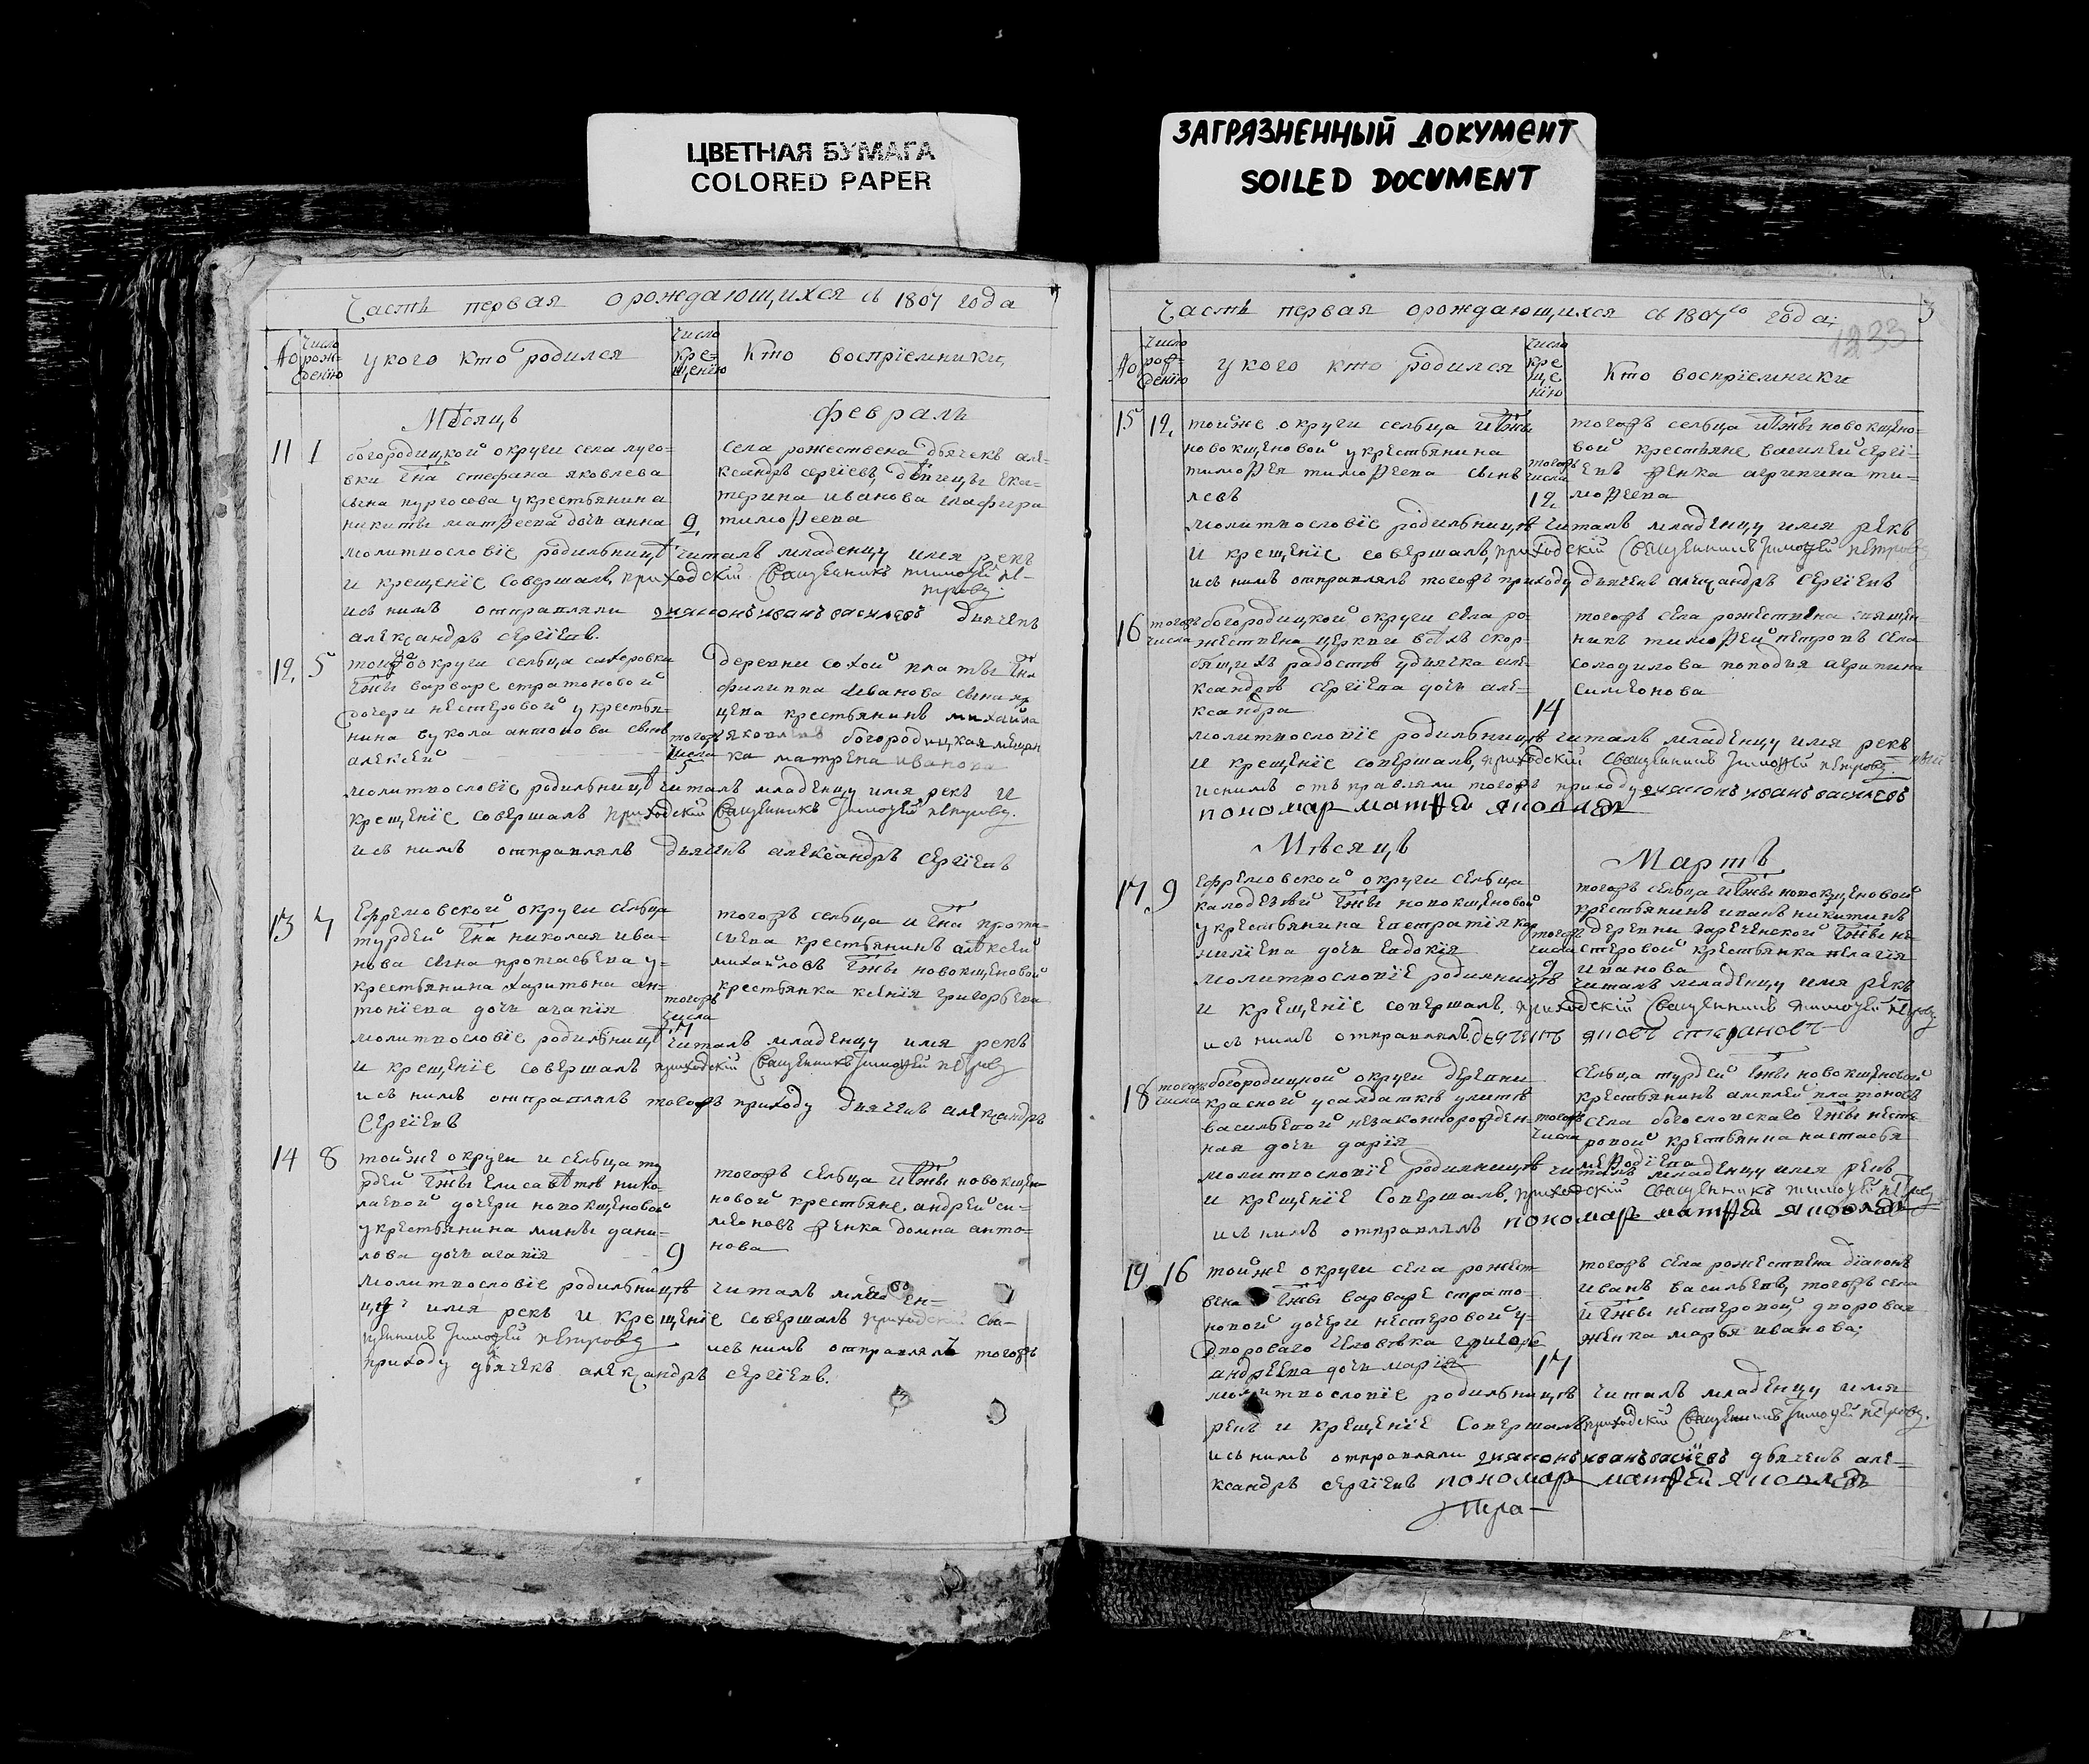 ЦВЕТНАЯ БУМАГА
COLORED PAPER
ЗАГРЯЗНЕННЫЙ ДОКУМЕНТ
SOILED DOCUMENT
Часть первая орождающихся съ 1807 года
№
число рож-дению
у кого кто родился
число кре-щению
Кто воспрїемники,
Мѣсяцъ
февраль
11
1
богородицкой округи села луго-
вки Гна стефана яковлева
сына пургосова у крестьянина
никиты матѳеева дочь анна
9
села рожествена дьячекъ але-
ксандръ сергїевъ, дѣвицы ека-
терина иванова глафира
тимоѳеева
молитвословїе родильницѣ читалъ младенцу имя рекъ
и крещенїе совершалъ, приходскїй Священникъ тимоѳей пе-
тровъ.
исъ нимъ отправляли диаконъ иванъ василевъ дьячекъ
александръ сергїевъ.
12,
5
тойже округи сельца сахоровки
Гжы варваре стратоновой
дочери нестеровой у крестья-
нина вукола антонова сынъ
алексей
тогожъ числа 5
деревни сухой платы Гна
филиппа иванова сына
цева крестьянинъ михайла
яковлевъ богородицкая мещан
ка матрена иванова
молитвословїе родильницѣ читалъ младенцу имя рекъ и
крещенїе совершалъ приходскїй Священникъ Тимоѳей петровъ.
исъ нимъ отправлялъ дьячекъ александръ сергїевъ
13
7
Ефремовской округи сельца
турдей Гна николая ива-
нова сына протасьева у-
крестьянина харитона ан-
тонїева дочь агапїя
тогожъ числа 7
тогожъ сельца и Гна прота-
сьева крестьянинъ алексей
михайловъ Гжы новокщеновой
крестьянка ксенїя григорьева
молитвословїе родильницѣ читалъ младенцу имя рекъ
и крещенїе совершалъ приходскїй Священникъ Тимоѳей петровъ
исъ нимъ отправлялъ тогожъ приходу дьячекъ александръ
Сергїевъ
14
8
тойже округи и сельца ту
рдей Гжы елисаветы нико
лаевой дочери новокщеновой
у крестьянина мины дани-
лова дочь агапїя
9
тогожъ сельца и Гжы новокще-
новой крестьяне андрей си-
меоновъ женка домна анто-
нова
молитвословїе родильницѣ читалъ младен-
цу имя рекъ и крещенїе совершалъ приходскїй Свя-
щенникъ Тимоѳей петровъ исъ нимъ отправлялъ тогожъ
приходу дьячекъ александръ сергїевъ.
Часть первая орождающихся съ 1807го года;
3
1233
№
число рож-дению
у кого кто родился
число кре ще нїю
Кто воспрїемники
15
12,
тойже округи сельца и Гжы
новокщеновой у крестьянина
тимоѳея тимоѳеева сынъ
левъ
тогожъ числа 12
тогожъ сельца и Гжы новокщено-
вой крестьяне василей сергї-
евъ женка агрипина ти-
моѳеева
молитвословїе родильницѣ читалъ младенцу имя рекъ
и крещенїе совершалъ, приходскїй Священникъ Тимоѳей петровъ
исъ нимъ отправлялъ тогожъ приходу дьячекъ александръ сергїевъ
16
тогожъ числа
богородицкой округи села ро-
жествена церкви всѣхъ скор-
бящихъ радости у дьячка але-
ксандра сергїева дочь але-
ксандра
14
тогожъ села рожествена священ
никъ тимоѳей петровъ села
солодилова попадья агрипина
симеонова
молитвословїе родильницѣ читалъ младенцу имя рекъ
и крещенїе совершалъ, приходскїй Священникъ Тимоѳей петровъ.
исъ нимъ отъправляли тогожъ приходу диаконъ иванъ василевъ
пономар матѳей яковлевъ
Мѣсяцъ
Мартъ
17,
9
Ефремовской округи сельца
калодезей Гжы новокщеновой
у крестьянина евстратїя кор
нилїева дочь евдокїя
тогожъ числа 9
тогожъ сельца и Гжы новокщеновой
крестьянинъ иванъ никитинъ
деревни зареченской Гжы не
стеровой крестьянка пелагїя
иванова
молитвословїе родильницѣ читалъ младенцу имя рекъ
и крещенїе совершалъ, приходскїй Священникъ тимоѳей петровъ
исъ нимъ отправлялъ дьячекъ яковъ стефановъ
18
тогожъ числа
богородицкой округи деревни
красной у салдатки улиты
васильевой незаконнорожден-
ная дочь дарїя
тогожъ числа
сельца турдей Гжы новокщеновой
крестьянинъ амплей платоновъ
села богословскаго Гжы несте
ровой крестьянка настасья
меѳодїева
молитвословїе родильницѣ читалъ младенцу имя рекъ
и крещенїе совершалъ, приходскїй Священникъ тимоѳей петровъ
исъ нимъ отправлялъ пономар матѳей яковлевъ
19
16
тойже округи села рожест-
вена Гжы варваре страто-
новой дочери нестеровой у-
двороваго человѣка григорья
андреева дочь марїя
17
тогожъ села рожествена дїаконъ
иванъ васильевъ, тогожъ села
и Гжы нестеровой дворовая
женка марья иванова;
молитвословїе родильницѣ читалъ младенцу имя
рекъ и крещенїе совершалъ приходскїй Священникъ Тимоѳей петровъ.
исъ нимъ отправляли диаконъ иванъ василевъ дьячекъ але-
ксандръ сергїевъ пономар матѳей яковлевъ